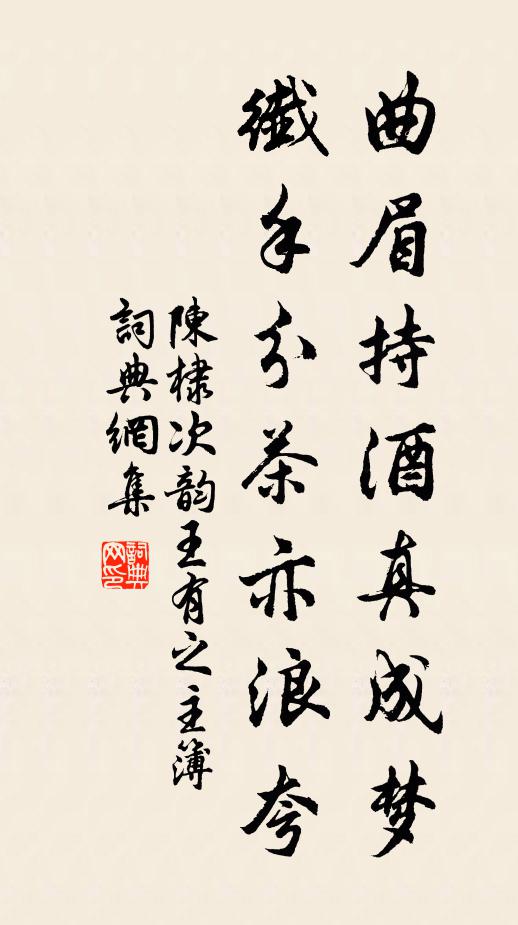 曲眉持酒真成梦
纖手分茶亦浪夸
陳棣次韵王有之主簿
詞典網集
詞典
网印